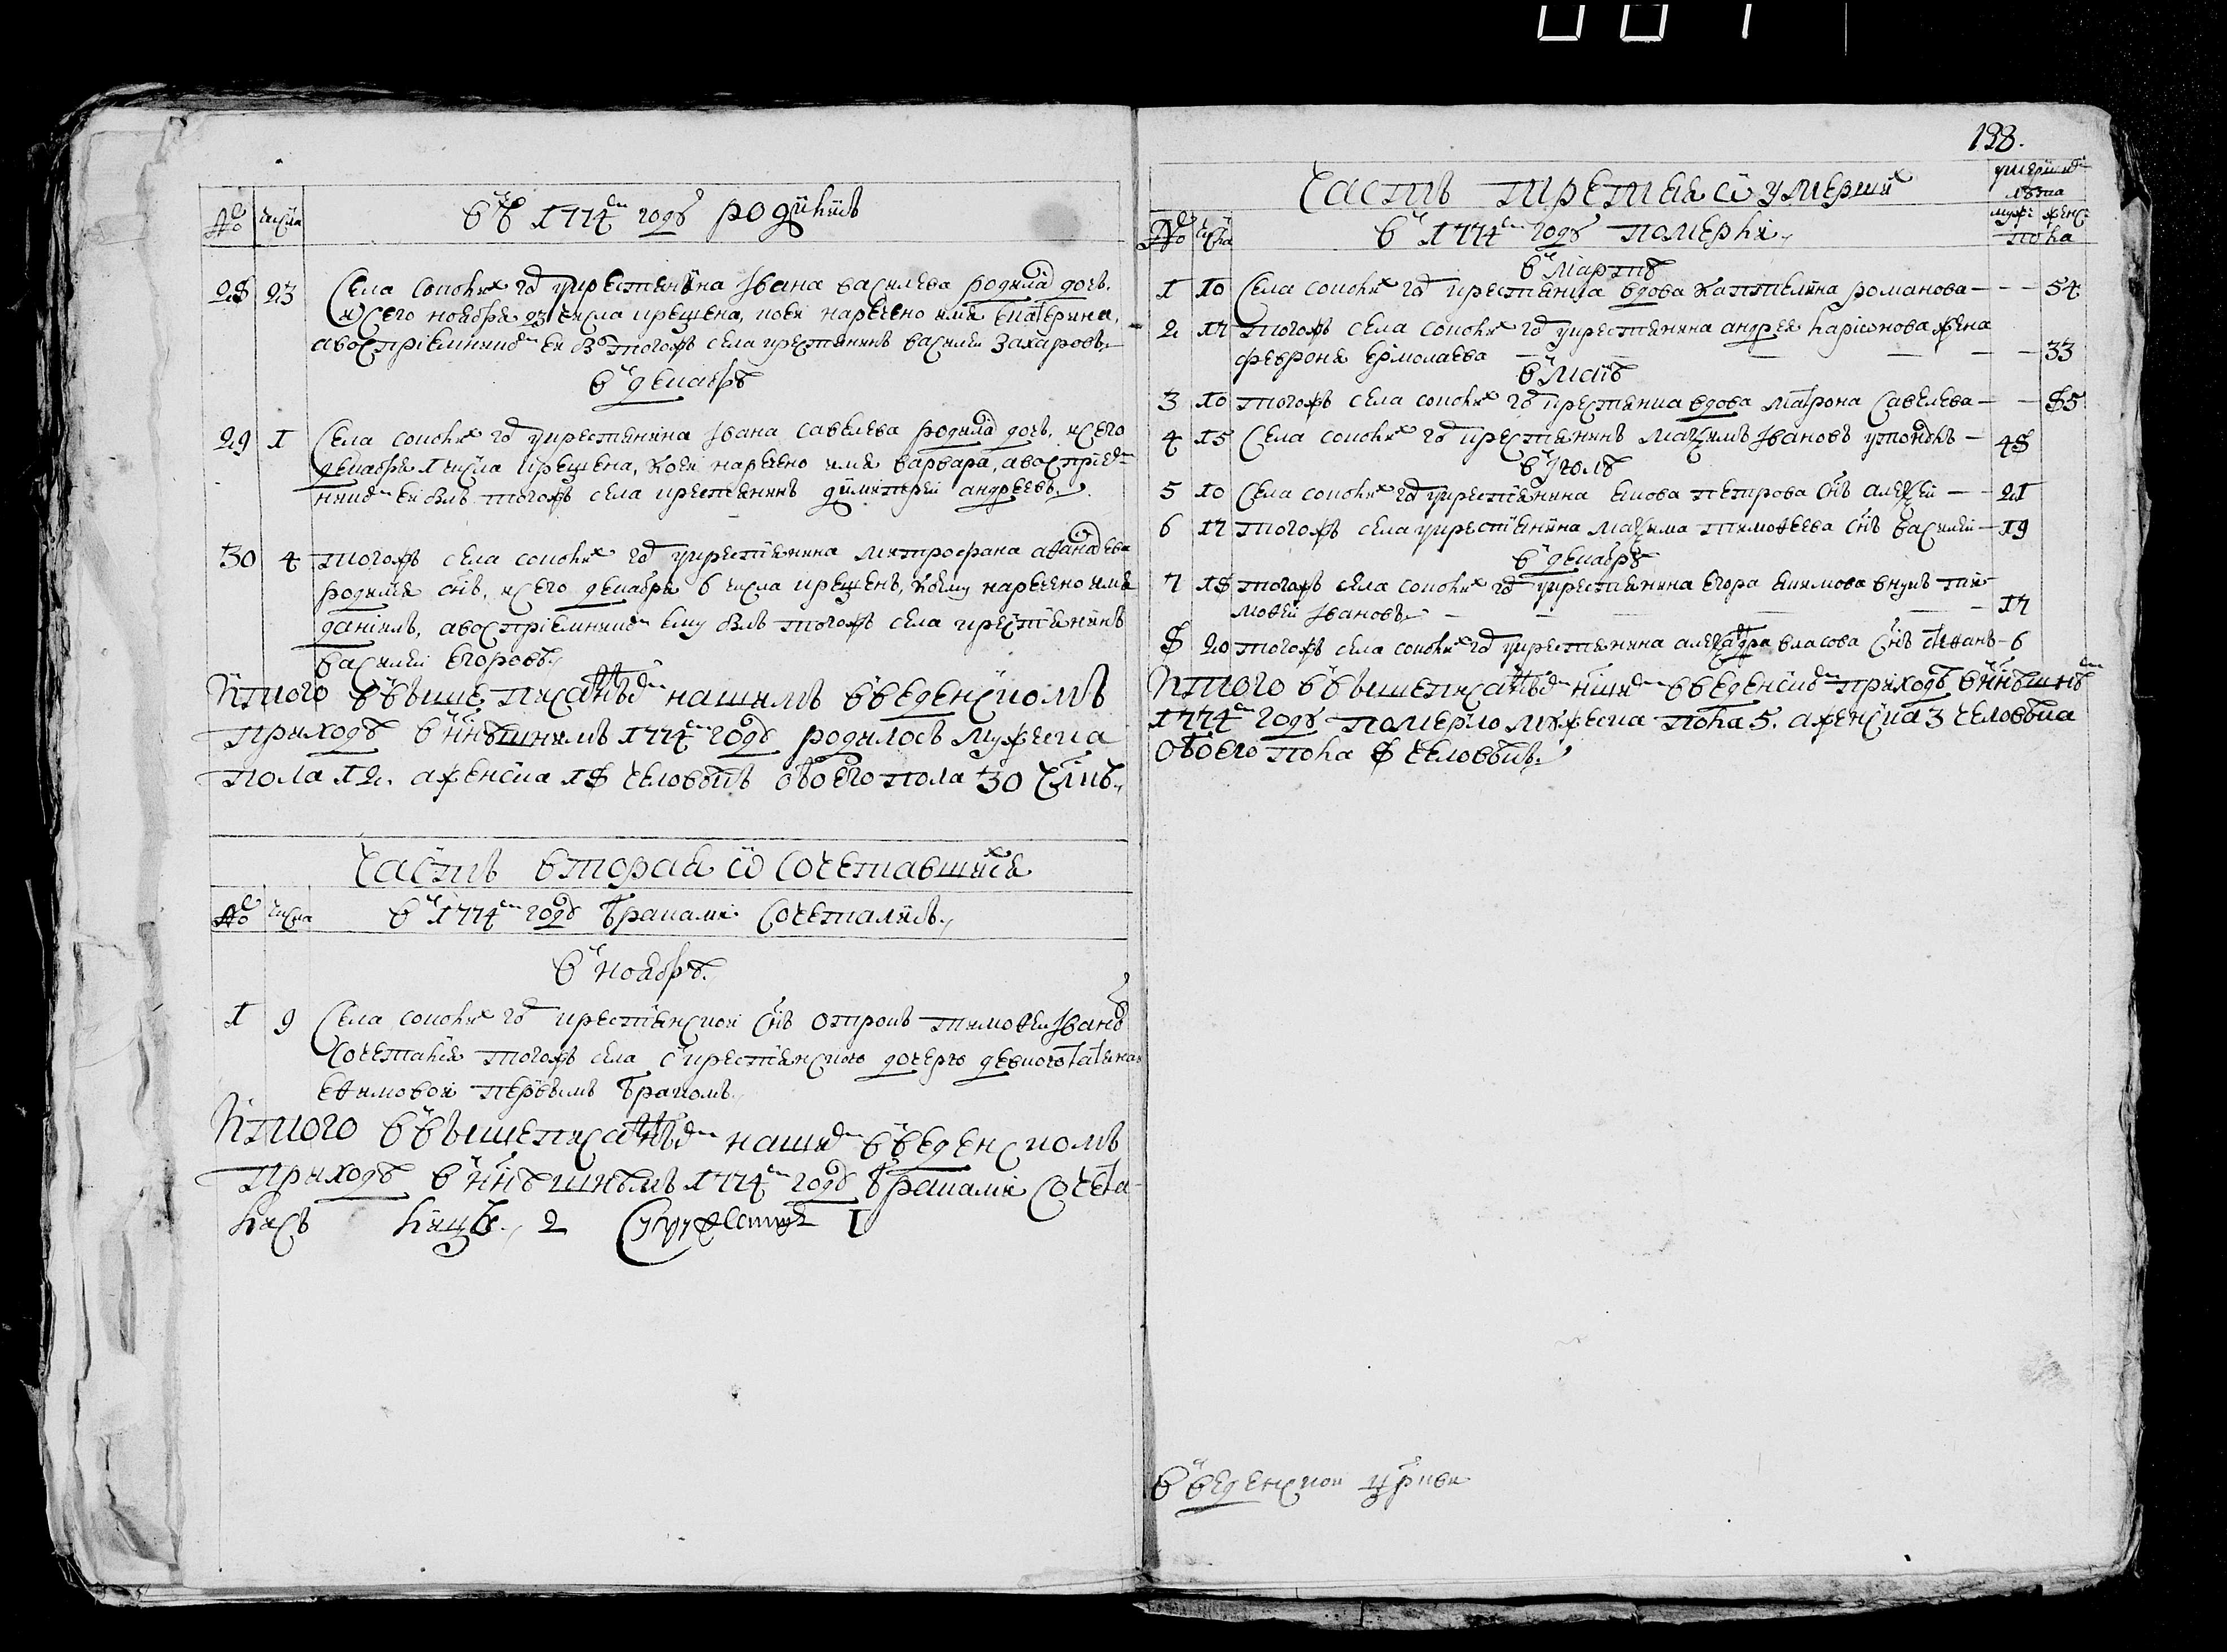 № числа въ 1774м году родились
28 23 Села сокольих гор у крестьянина Івана василева родилась дочь,
и сего ноября 23 числа крещена, коей наречено имя Екатерина,
а воспріемником ей был тогожъ села крестьянинъ василей захаровъ
въ декабрѣ
29 1 Села сокольих гор у крестьянина Івана савелева родилась дочь, и сего
декабря 1 числа крещена, коей наречено имя варвара, а воспріем
ником ей былъ тогожъ села крестьянинъ димитрей андреевъ
30 4 тогожъ села сокольих гор у крестьянина митрофана
родился снъ, и сего декабря 6 числа крещенъ, коему наречено имя
даніилъ, а воспріемником ему былъ тогожъ села крестьянинъ
василей егоровъ
Итого въ вышеписанном нашемъ введенскомъ
приходѣ в ннѣшнемъ 1774м году родилось мужеска
пола 12. а женска 18 человѣкъ обоего пола 30 члвкъ
Часть вторая ѿ сочетавшихся
№ числа въ 1774м году браками сочетались
въ ноябрѣ
1 9 Села сокольих гор крестьянской снъ отрокъ тимоѳей Іванов
сочетался тогожъ села с крестьянскою дочерю девкою татьяною
еѳимовой первымъ бракомъ
Итого въ вышеписанном нашем введенскомъ
приходѣ в ннѣшнемъ 1774м году браками сочета
лись лицъ 2 супружествъ 1
Часть третея ѿ умерших
умершим
лѣта
№ числа въ 1774м году померли
муж: женс:
пола
въ мартѣ
1 10 Села сокольих гор крестьянка вдова капитолина романова — 54
2 17 тогожъ села сокольих гор у крестьянина андрея ларионова жена
феврония ермолаева — 33
въ маиѣ
3 10 тогожъ села сокольих гор крестьянка вдова матрона савелева — 85
4 15 Села сокольих гор крестьянинъ маѯимъ Івановъ — 48
въ іюлѣ
5 10 Села сокольих гор у крестьянина петрова снъ алеѯей — 21
6 17 тогожъ села у крестьянина маѯима тимоѳеева снъ василей — 19
въ декабрѣ
7 18 тогожъ села сокольих гор у крестьянина егора внукъ ти
моѳей Івановъ — 17
8 20 тогожъ села сокольих гор у крестьянина алеѯандра власова снъ степанъ — 6
Итого въ вышеписанном ншем введенском приходѣ в ннѣшнем
1774м году померло мужеска пола 5. а женска 3 человѣка
обоего пола 8 человѣкъ
введенской цркви